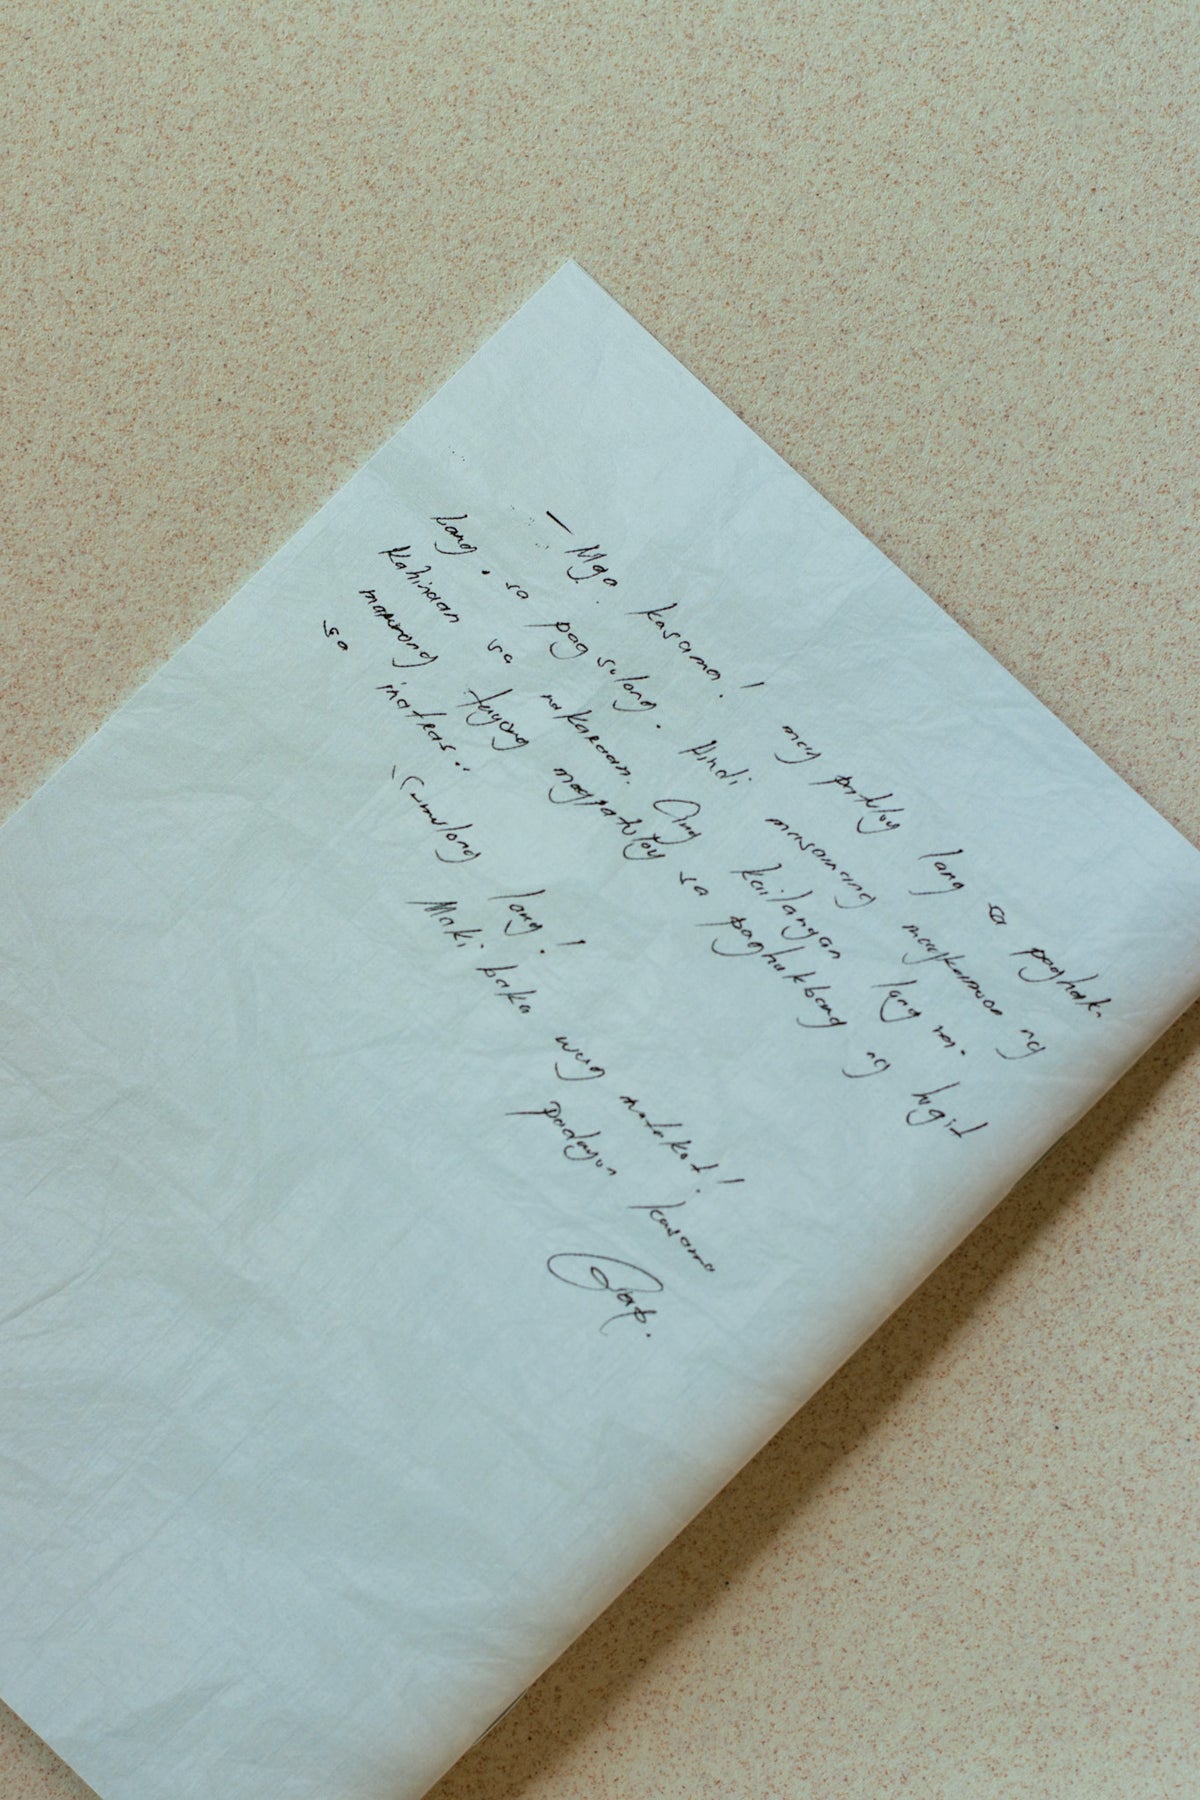 – Mga kasama! magpatuloy lang sa paghak-
bang. sa pag sulong. Hindi masamang magkaroon ng
kahinaan sa nakaraan. Ang kailangan lang na.
marunong tayong magpatuloy sa paghakbang ng higit
sa inatras.
Sumulong lang!
Maki baka wag matakot!
padayon kasama